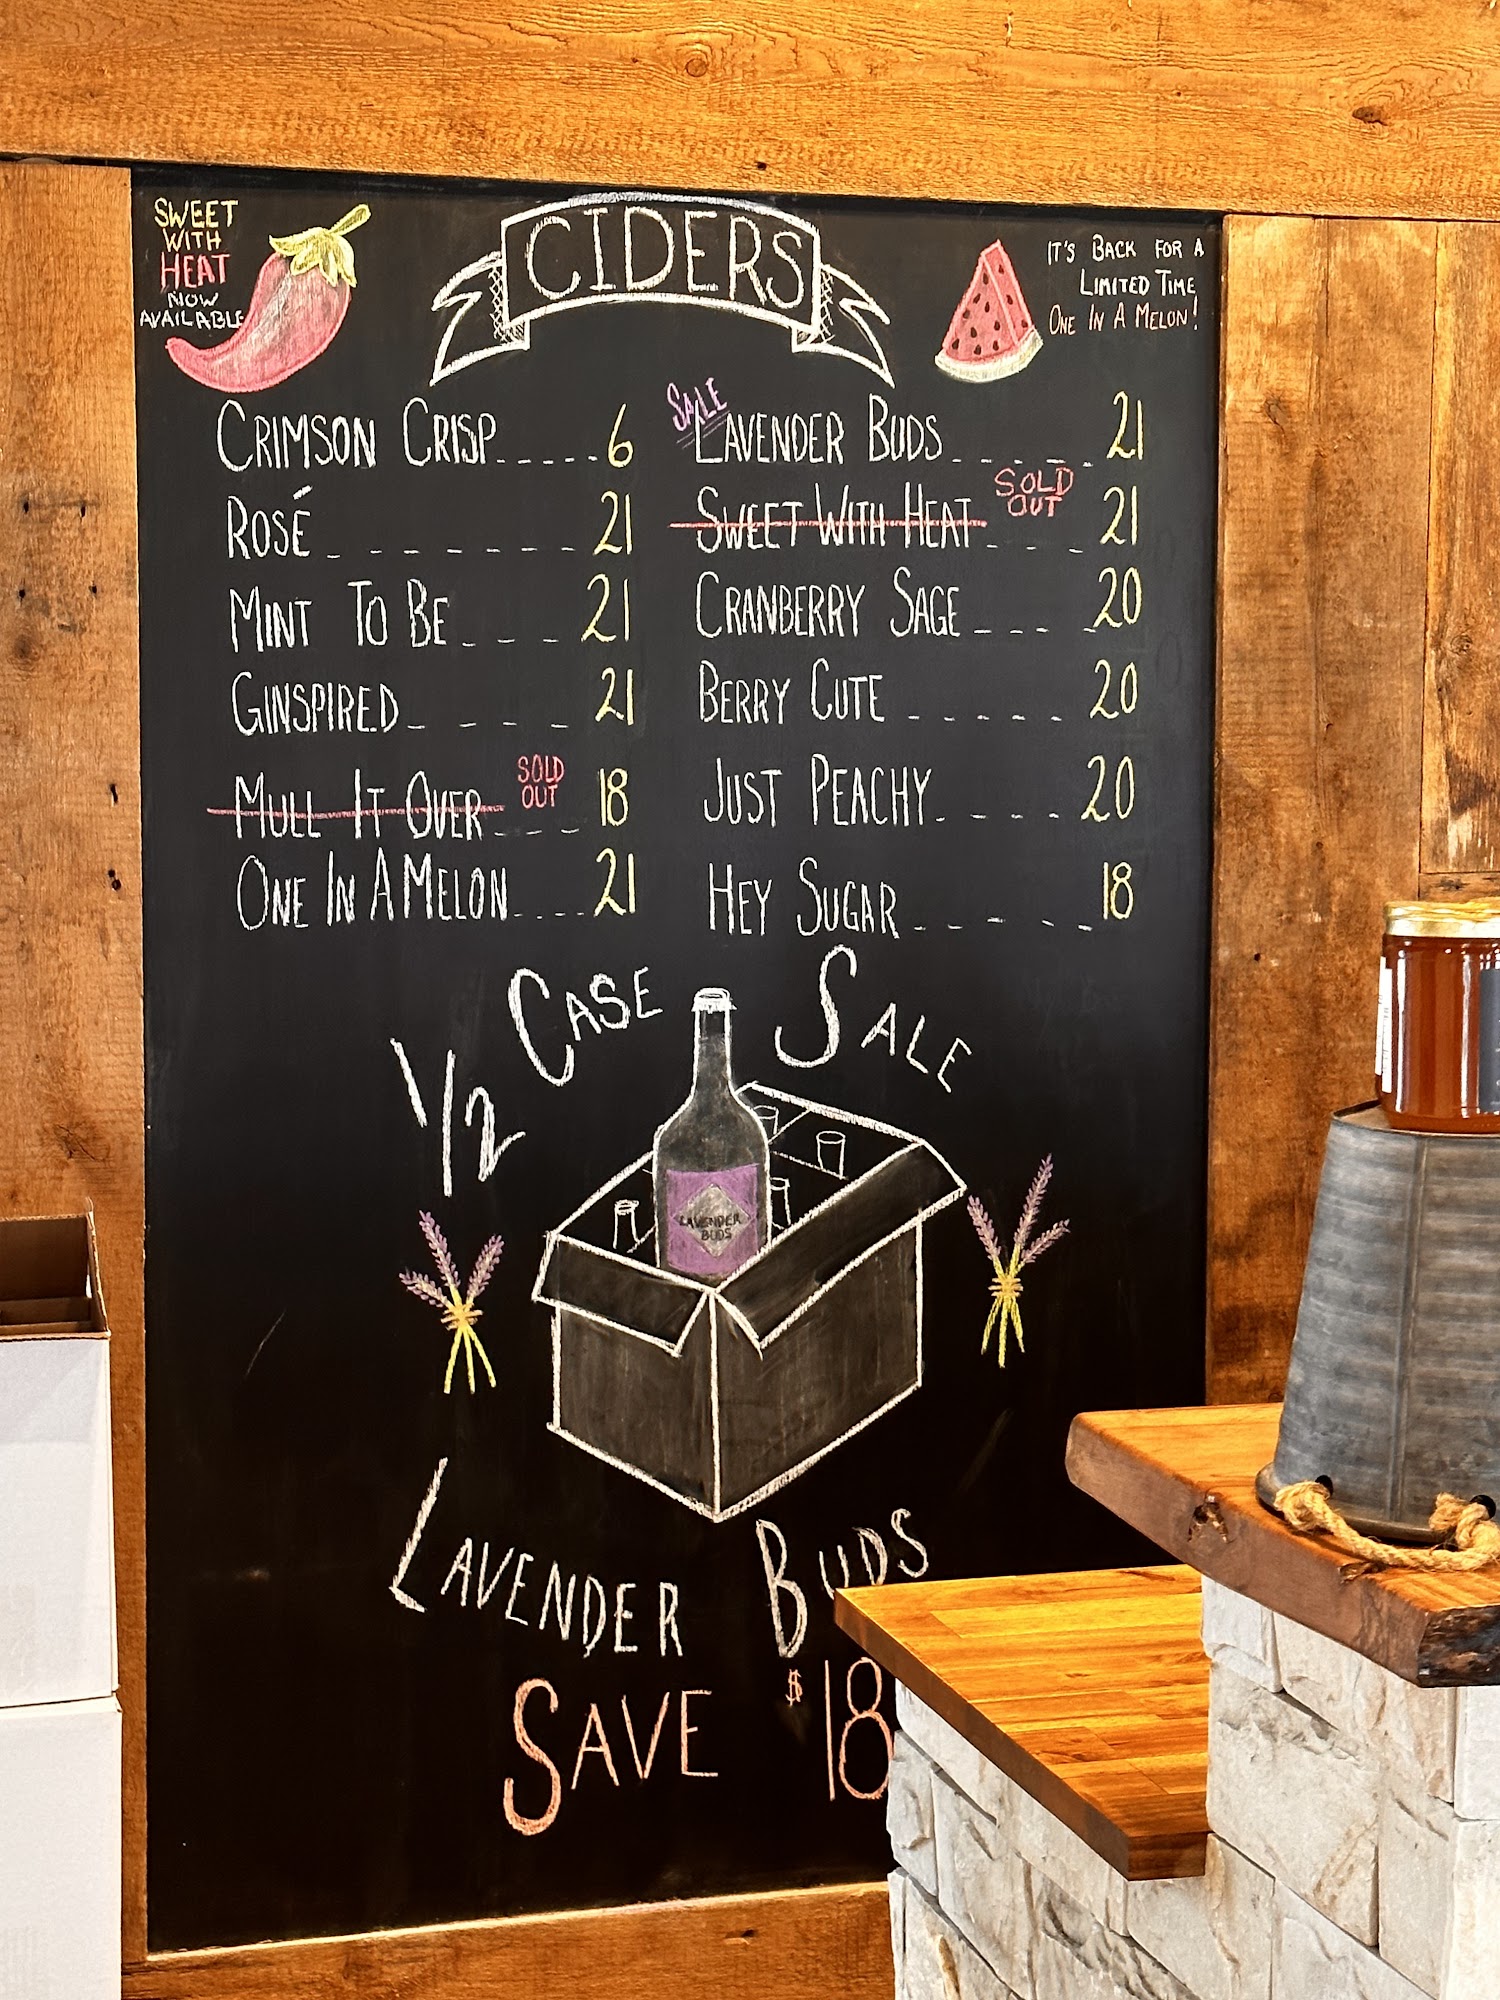 SWEET
WITH
HEAT
NOW
AVAILABLE
CIDERS
IT'S BACK FOR A
LIMITED TIME
ONE IN A MELON!
CRIMSON CRISP 6
ROSÉ 21
MINT TO BE 21
GINSPIRED 21
MULL IT OVER SOLD OUT 18
ONE IN A MELON 21
SALE
LAVENDER BUDS 21
SWEET WITH HEAT SOLD OUT 21
CRANBERRY SAGE 20
BERRY CUTE 20
JUST PEACHY 20
HEY SUGAR 18
1/2 CASE SALE
LAVENDER
BUDS
LAVENDER BUDS
SAVE $18